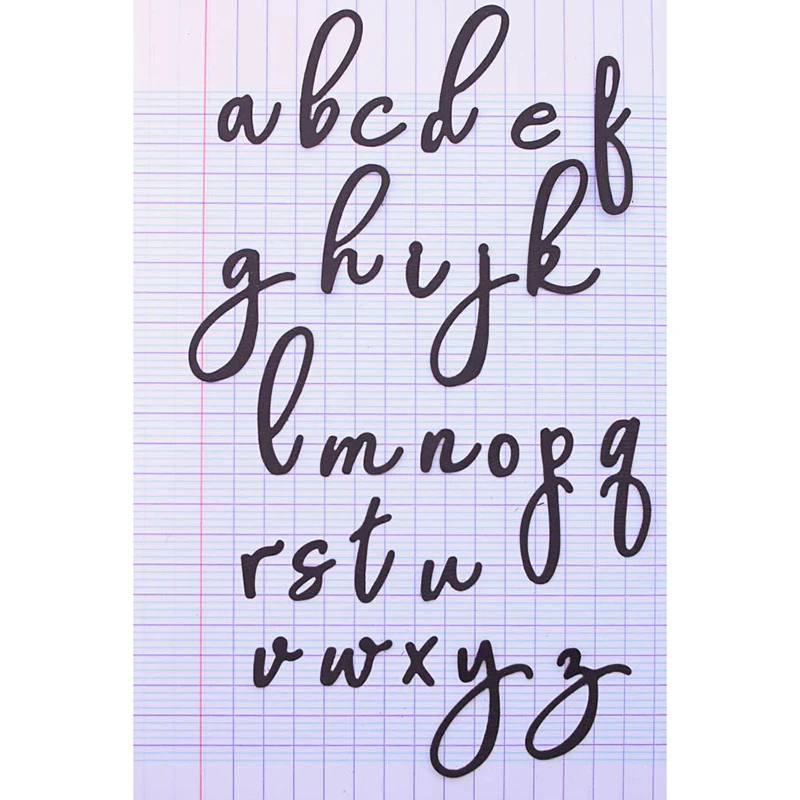 a b c d e f
g h i j k
l m n o p q
r s t u
v w x y z